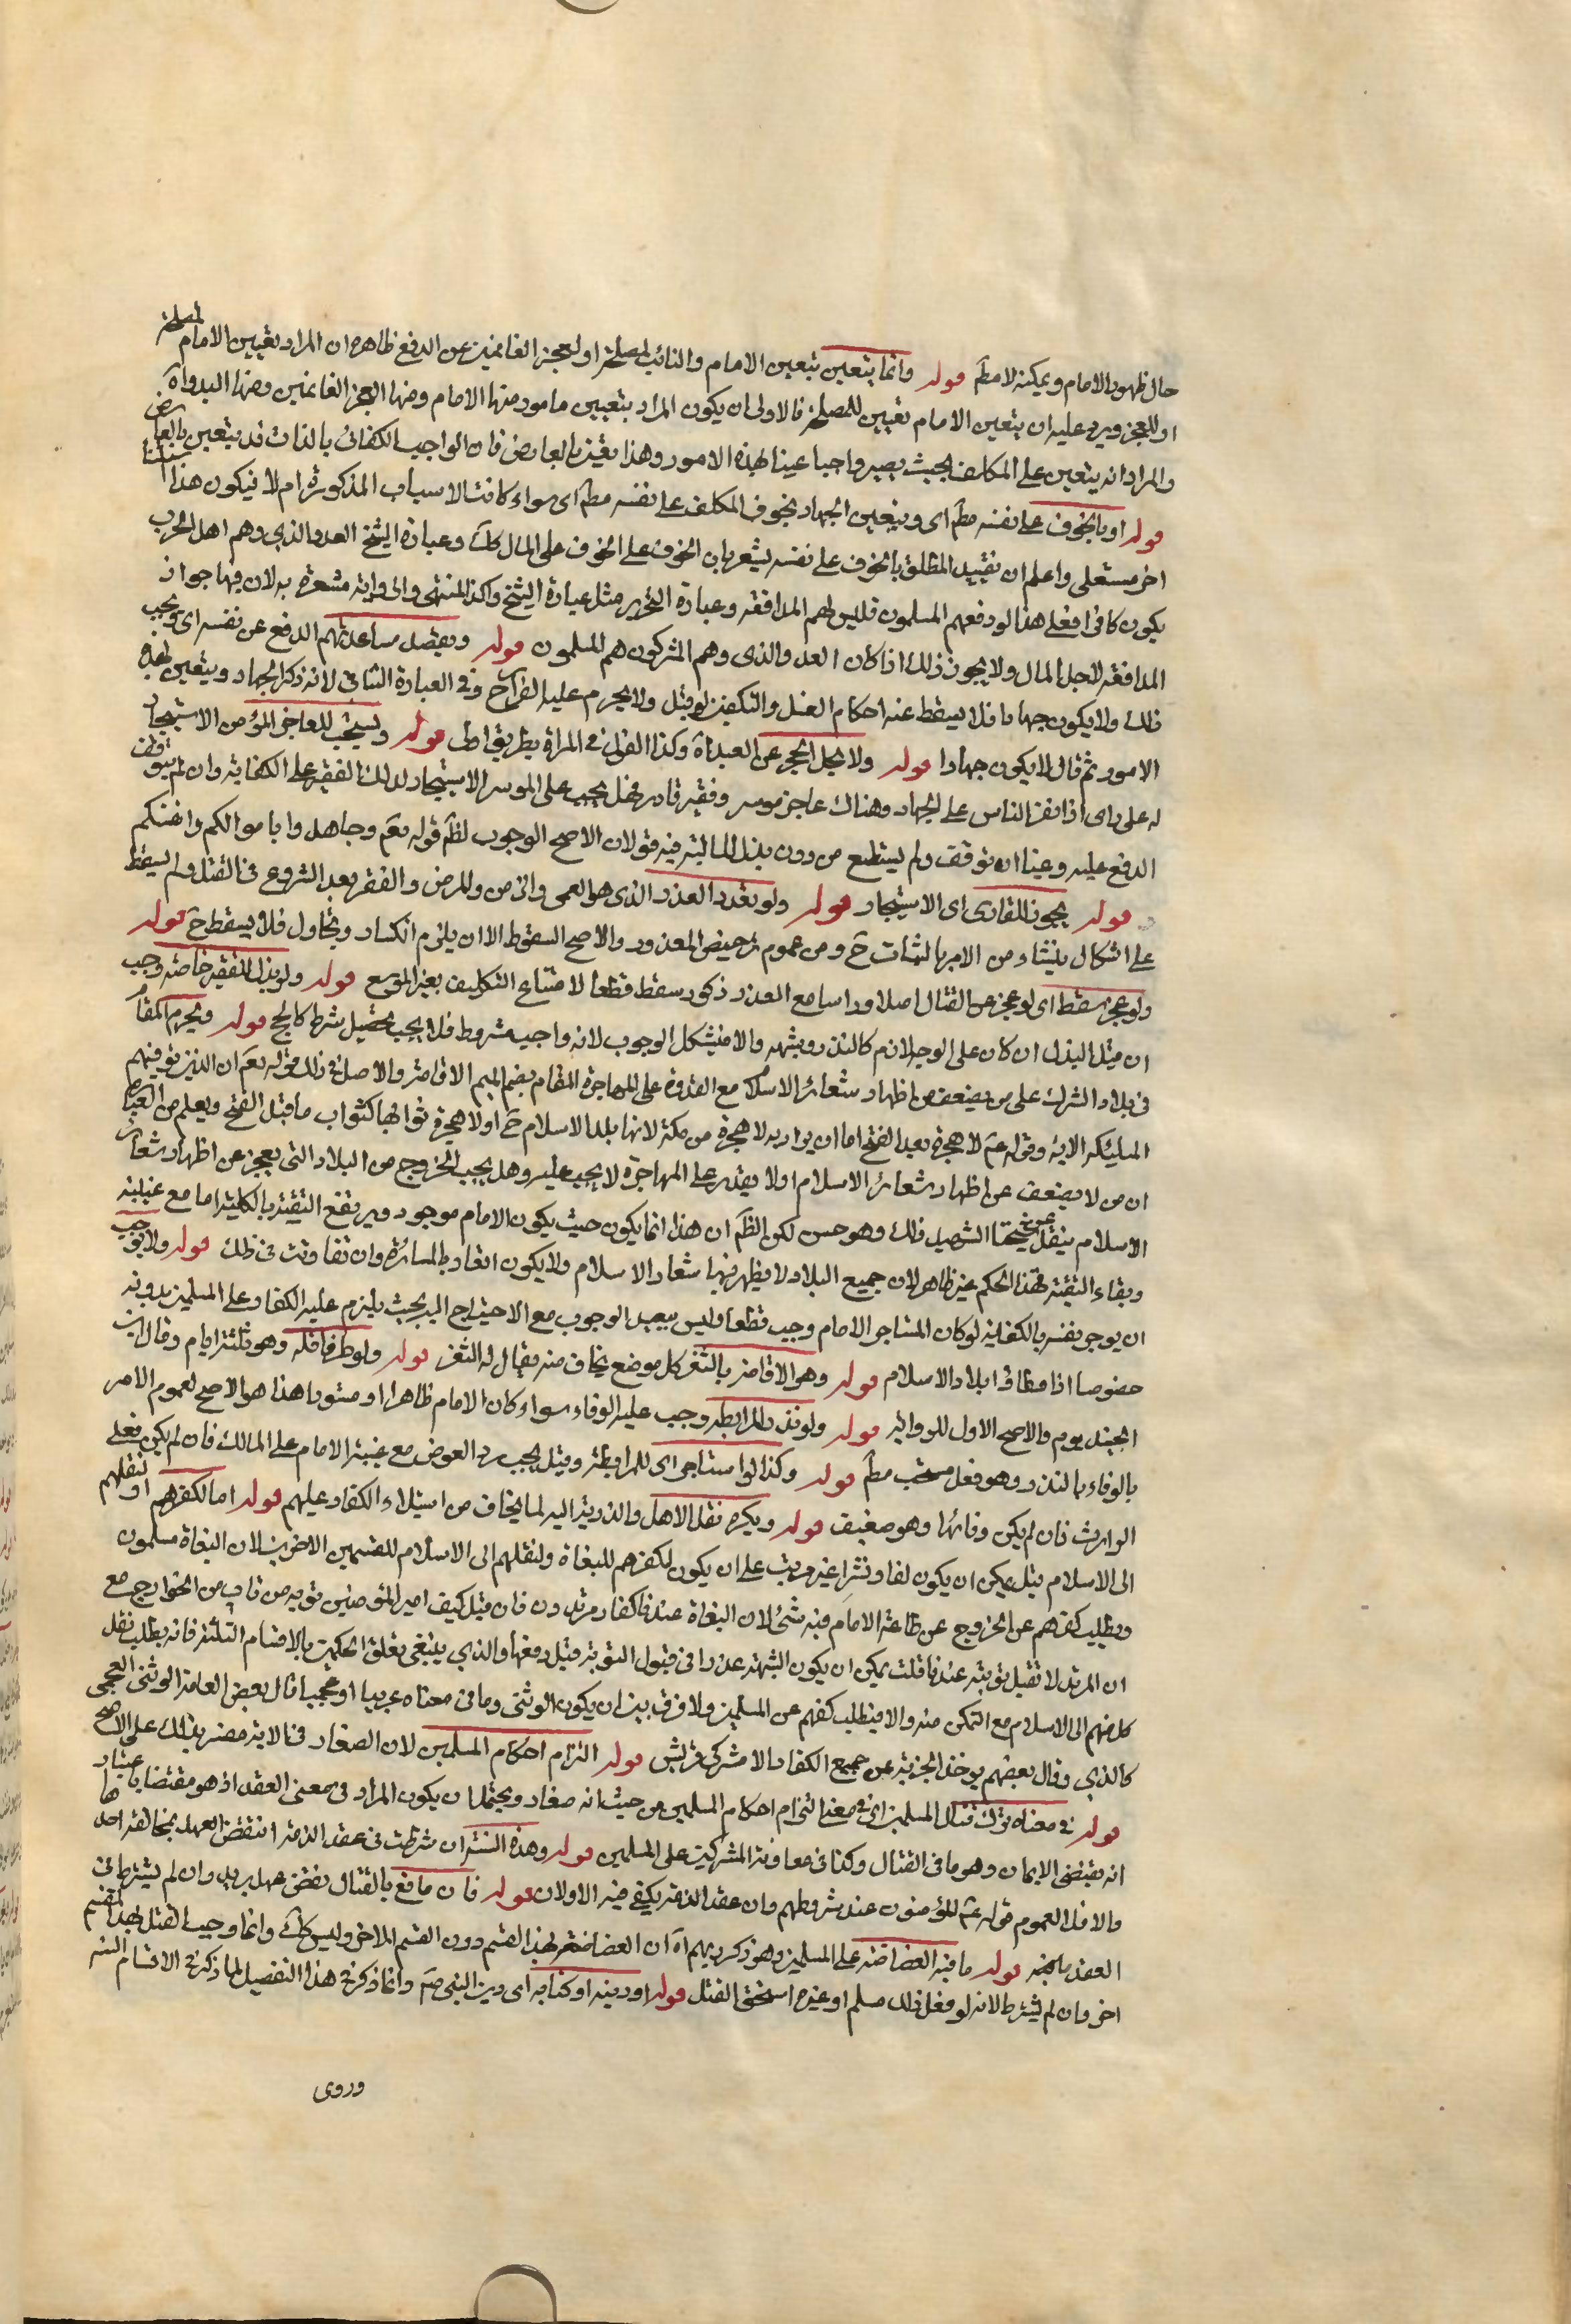 حال ظهور الامام وتمكينه لا مطم قوله وانما يتعين بتعيين الامام والنائب لمصلحة او لعجز القائمين عن الدفع ظاهره ان المراد تعيين الامام لمصلحة
او للعجز ويرد عليه ان يتعين الامام تعيين للمصلحة فالاولى ان يكون المراد بتعيين مامور منها الامام ومنها العجز القائمين ومنها البدواة
والمراد انه يتعين على المكلف بحيث يصير واجبا عينا لهذه الامور وهذا يتعين بالعارض فان الواجب الكفائى بالذات قد يتعين بالعارض
قوله او بالخوف على نفسه مطم اى ويتعين الجهاد بخوف المكلف على نفسه مطم اى سواء كانت الاسباب المذكورة ام لا فيكون هذا
اخر مستعلى واعلم ان تقييد المطلق بالخوف على نفسه يشعر بان الخوف على المال كك وعبارة الشيخ العدو الذي وهم اهل الحرب
يكون كافرا فعلى هذا لو دفعهم المسلمون فليس لهم المدافعة وعبارة التحرير مثل عبارة الشيخ وكذا المنتهى والرواية مشعرة به لان فيها جواز
المدافعة لاجل المال ولا يجوز ذلك اذا كان العدو الذى وهم المشركون هم المسلمون قوله ويقصد مساعدتهم الدفع عن نفسه اى ويجب
ذلك ولا يكون جهادا فلا يسقط عنه احكام الغسل والتكفين لو قتل ولا يحرم عليه الفرار ح وفى العبارة الثانى لانه ذكر الجهاد ويتعين لهذه
الامور ثم قال لا يكون جهادا قوله ولا يحل الحجر عن العبد اه وكذا القول فى المراة بطريق اولى قوله ويستحب للعاجز المؤمن الاستيجار
له على راى اذا نفر الناس على الجهاد وهناك عاجز موسر وفقير قادر فهل يجب على الموسر الاستيجار لذلك الفقير على الكفاية وان لم يتوقف
الدفع عليه وعينا ان توقف ولم يستطع من دون بذل المال فيه قولان الاصح الوجوب لظم قوله تعم وجاهدوا باموالكم وانفسكم
قوله يجوز للقادر اى الاستيجار قوله ولو تجدد العذر الذى هو العمى والزمن والمرض والفقر بعد الشروع فى القتل ولم يسقط
على اشكال ينشاء من الامر بالثبات ح ومن عموم ترخيص المعذور والاصح السقوط الا ان يلزم انكسار وتخاول فلا يسقط ح قوله
ولو عجز سقط اى لو عجز عن القتال اصلا وراسا مع العذر ذكور سقط قطعا لامتناع التكليف بغير الموسع قوله ولو بذل للفقير خاصة وجب
ان قبل البذل ان كان على الوجه لازم كالنذر وشبهه والا فيشكل الوجوب لانه واجب مشروط فلا يجب تحصيل شرط كالحج قوله ويحرم المقام
فى بلاد الشرك على من يضعف عن اظهار شعائر الاسلام مع القدرة على المهاجرة المقام بضم الميم الاقامة والاصل فى ذلك قوله تعم ان الذين توفيهم
الملئكه الاية وقوله عم لا هجرة بعد الفتح اما ان يراد به لا هجرة من مكة لانها بلد الاسلام ح او لا هجرة ثوابها كثواب ما قبل الفتح ويعلم من العبارة
ان من لا يضعف عن اظهار شعائر الاسلام او لا يقدر على المهاجرة لا يجب عليه وهل يجب الخروج من البلاد التى يعجز عن اظهار شعائر
الاسلام ينقل عن شيخنا الشهيد ذلك وهو حسن لكن الظم ان هذا انما يكون حيث يكون الامام موجود ويرتفع التقية بالكلية اما مع غيبته
وبقاء التقية فهذا الحكم غير ظاهر لان جميع البلاد لا يظهر فيها شعار الاسلام ولا يكون انفاد بالمسائرة وان تفاوتت فى ذلك قوله ولا يجب
ان يوجر نفسه بالكفاية لو كان المستاجر الامام وجب قطعا وليس ببعيد الوجوب مع الاحتياج اليه بحيث يلزم عليه الكفار على المسلمين بدونه
خصوصا اذا صادفا بلاد الاسلام قوله وهو الاقامة بالثغر كل موضع يخاف منه يقال له الثغر قوله ولو طرفا قله وهو ثلثة ايام وقال ابن
الجنيد يوم والاصح الاول للرواية قوله ولو نذر المرابطة وجب عليه الوفاء سواء كان الامام ظاهرا او مستورا هذا هو الاصح لعموم الامر
بالوفاء بالنذر وهو فعل مستحب مطم قوله وكذا لو استاجر اى للمرابطة وقيل يجب رد العوض مع غيبة الامام على المالك فان لم يكن فعلى
الوارث فان لم يكن وفى بها وهو ضعيف قوله ويكره نقل الاهل والذرية اليه لما يخاف من استيلاء الكفار عليهم قوله اما لكفرهم او لنقلهم
الى الاسلام قيل يمكن ان يكون لفا ونشرا غير مرتب على ان يكون لكفرهم للبغاة ولنقلهم الى الاسلام للقسمين الاخرين لان البغاة مسلمون
ويطلب كفرهم عن الخروج عن طاعة الامام فيه شئ لان البغاة عندنا كفار مرتدون فان قيل كيف امير المؤمنين توبة من تاب من الخوارج مع
ان المرتد لا تقبل توبته عندنا قلت يمكن ان يكون الشبهة عذرا فى قبول التوبة قبل دفعها والذي ينبغى تعلق الحكمين بالاقسام الثلثة فانه يطلب نقل
كل منهم الى الاسلام مع التمكن منه والا فيطلب كفهم عن المسلمين ولا فرق بين ان يكون الوثنى وما فى معناه عربيا او عجميا قال بعض العامة الوثنى العجمى
كالذي وقال بعضهم يوخذ الجزية عن جميع الكفار الا مشركى قريش قوله التزام احكام المسلمين لان الصغار فى الاية مفسر بذلك على الاصح
قوله فى معناه ترك قتال المسلمين اى فى معنى التزام احكام المسلمين من حيث انه صغار ويحتمل ان يكون المراد فى معنى العقد اذ هو مقتضاه باعتبار
انه يقتضى الايمان وهو ما فى القتال وكذا فى معاونة المشركين على المسلمين قوله وهذه الستة ان شرطت فى عقد الذمة انتقض العهد بمخالفة احدها
والا فلا لعموم قوله عم المؤمنون عند شروطهم وان عقد الذمة يكفى فيه الاولان قوله فان مانع بالقتال نقض عهده يريد وان لم يشترط فى
العقد مامنه قوله ما فيه الغضاضة على المسلمين وهو ذكر ربهم اه ان الغضاضة بهذا القسم دون القسم الاخر وليس كك وانما وجب القتل لهذا القسم
اخر وان لم يشترط لانه لو فعل ذلك مسلم او غيره استحق القتل قوله او دينه او كتابه اى دين النبى صم وانما ذكر فى هذا التفصيل لما ذكر فى الاقسام الستة
وروى